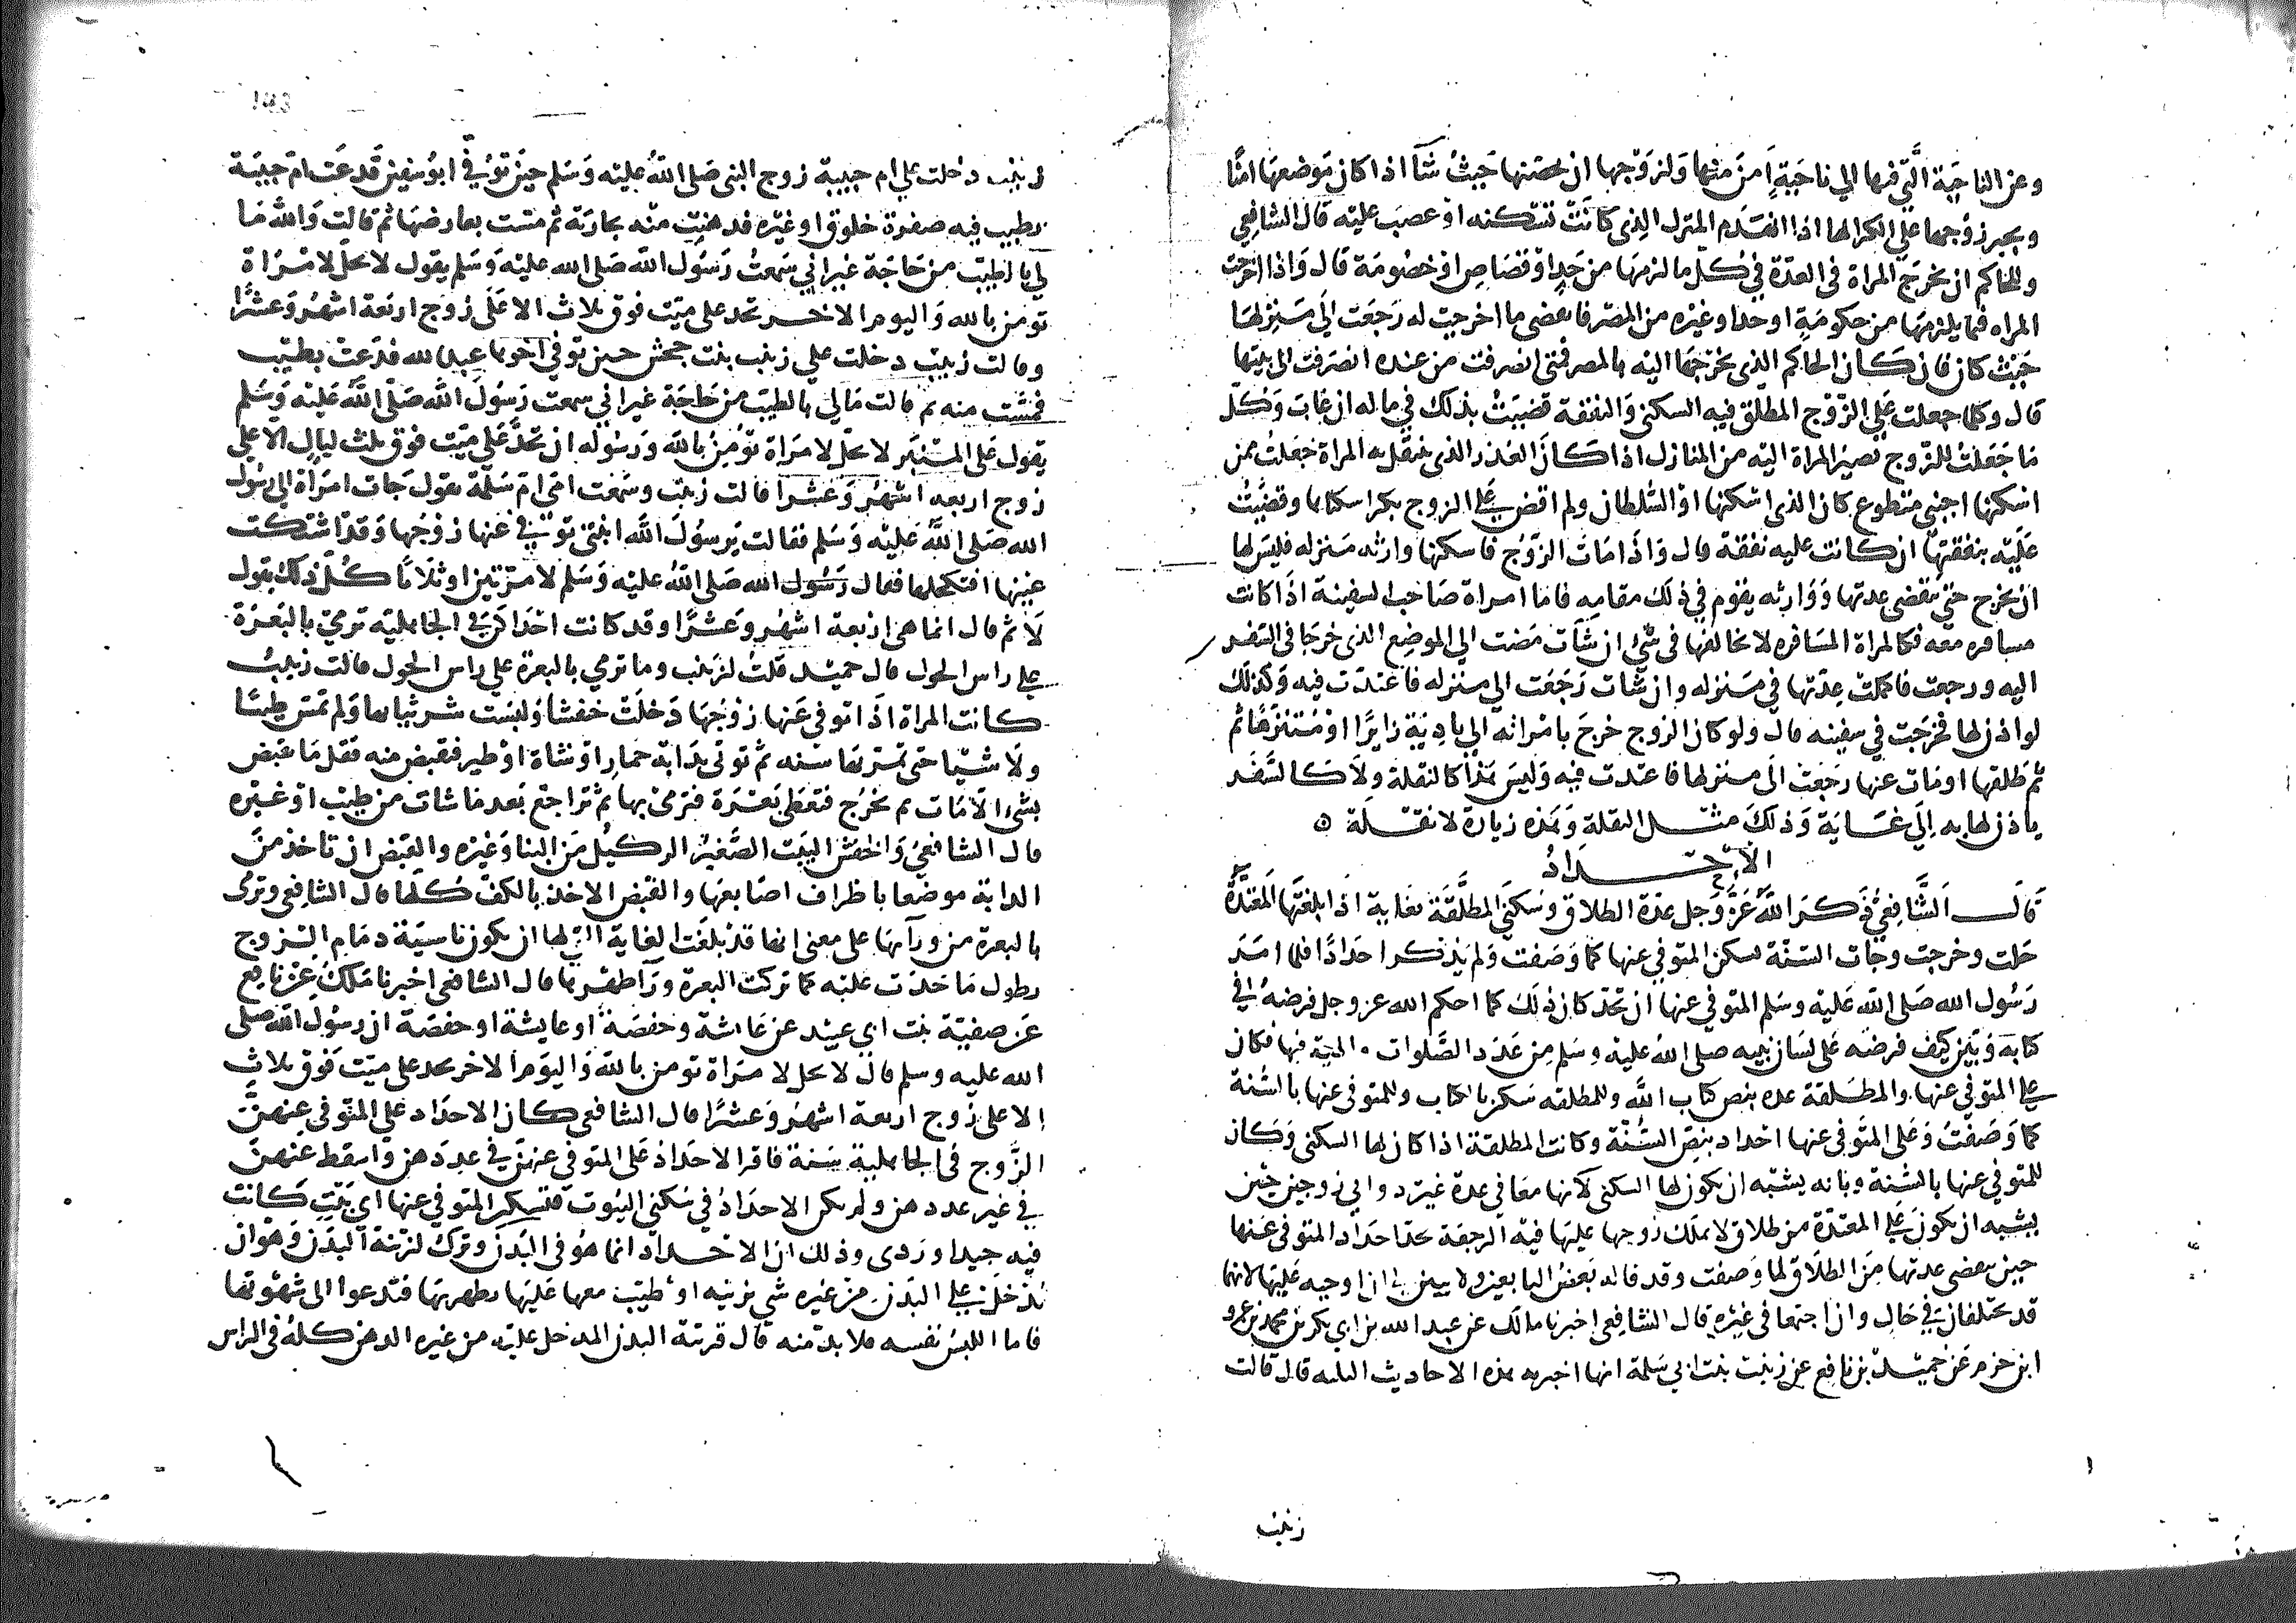 وعن الناحية التي فيها الي ناحية امن منها ولزوجها ان يحصنها حيث شآ اذا كان موضعها امنا
ويجبر زوجها علي الكرا لها اذا انهدم المنزل الذي كانت تسكنه او غصب عليه قال الشافعي
وللحاكم ان يخرج المراة في العدة في كل ما لزمها من حد او قصاص او خصومة قال واذا اخرجت
المراه فيما يلزمها من حكومة او حد او غيره من المصر فانقضي ما اخرجت له رجعت الي منزلها
حيث كان فان كان الحاكم الذي يخرجها اليه بالمصر فمتي انصرفت من عنده انصرفت الي بيتها
قال وكلما جعلت علي الزوج المطلق فيه السكني والنفقة قضيت بذلك في ماله ان غاب وكل
ما جعلت للزوج تصيير المراة اليه من المنازل اذا كان العذر الذي ينتقل به المراة فجعلت لمن
اسكنها اجنبي متطوع كان الذي اسكنها او السلطان ولم اقض علي الزوج بكرا سكناها وقضيت
عليه بنفقتها ان كانت عليه نفقة قال واذا مات الزوج فاسكنها وارثه منزله فليس لها
ان تخرج حتي تنقضي عدتها ووارثه يقوم في ذلك مقامه فاما امراة صاحب السفينة اذا كانت
مسافره معه فكالمراة المسافره لا تخالفها في شي ان شات مضت الي الموضع الذي خرجا في السفر
اليه ورجعت فاكملت عدتها في منزله وان شات رجعت الي منزله فاعتدت فيه وكذلك
لو اذن لها فخرجت في سفينه قال ولو كان الزوج خرج بامراته الي بادية زايرا او متنزها ثم
ثم طلقها او مات عنها رجعت الي منزلها فاعتدت فيه وليس هذا كالنقلة ولا كالسفر
ياذن لها به الي غاية وذلك مثل النقلة وهذه زيارة لا نقلة ه
الاحداد
قال الشافعي ذكر الله عز وجل عدة الطلاق وسكني المطلقة بغاية اذا بلغتها المعتدة
حلت وخرجت وجات السنة بسكن المتوفي عنها كما وصفت ولم يذكر احدادا فلما امر
رسول الله صلي الله عليه وسلم المتوفي عنها ان تحد كان ذلك كما احكم الله عز وجل فرضه في
كتابه وبين كيف فرضه علي لسان نبيه صلي الله عليه وسلم من عدد الصلوات فيها فكان
علي المتوفي عنها والمطلقة عده بنص كتاب الله وللمطلقه سكن بالكتاب وللمتوفي عنها بالسنة
كما وصفت وعلي المتوفي عنها احداد بنص السنة وكانت المطلقة اذا كان لها السكني وكان
للمتوفي عنها بالسنة وبانه يشبه ان يكون لها السكني لانها معا في عدة غير ذواتي زوجين حتي
يشبه ان يكون علي المعتدة من طلاق لا يملك زوجها عليها فيه الرجعة احداد المتوفي عنها
حين تنقضي عدتها من الطلاق لما وصفت وقد قاله بعض التابعين ولا يبين لي ان اوجبه عليها لانهما
قد يختلفان في حال وان اجتمعا في غيره قال الشافعي اخبرنا مالك عن عبد الله بن ابي بكر بن محمد بن عمرو
ابن حزم عن حميد بن نافع عن زينب بنت ابي سلمة انها اخبرته هذه الاحاديث الثلثه قال قالت
زينب
زينب دخلت علي ام حبيبة زوج النبي صلي الله عليه وسلم حين توفي ابو سفين فدعت ام حبيبة
بطيب فيه صفرة خلوق او غيره فدهنت منه جارية ثم مست بعارضها ثم قالت والله ما
لي بالطيب من حاجة غير اني سمعت رسول الله صلي الله عليه وسلم يقول لا يحل لامراة
تومن بالله واليوم الاخر تحد علي ميت فوق ثلاث الا علي زوج اربعة اشهر وعشرا
وقالت زينب دخلت علي زينب بنت جحش حين توفي اخوها عبد الله فدعت بطيب
فمست منه ثم قالت مالي بالطيب من حاجة غير اني سمعت رسول الله صلي الله عليه وسلم
يقول علي المنبر لا يحل لامراة تؤمن بالله ورسوله ان تحد علي ميت فوق ثلث ليال الا علي
زوج اربعه اشهر وعشرا قالت زينب وسمعت امي ام سلمة تقول جات امراة الي رسول
الله صلي الله عليه وسلم فقالت يرسول الله ابنتي توفي عنها زوجها وقد اشتكت
عينها افتكحلها فقال رسول الله صلي الله عليه وسلم لا مرتين او ثلاثا كل ذلك يقول
لا ثم قال انما هي اربعة اشهر وعشرا وقد كانت احداكن في الجاهلية ترمي بالبعرة
علي راس الحول قال حميد قلت لزينب وما ترمي بالبعرة علي راس الحول قالت زينب
كانت المراة اذا توفي عنها زوجها دخلت حفشا ولبست شر ثيابها ولم تمس طيبا
ولا شيا حتي تمر بها سنه ثم توتي بدابة حمار او شاة او طير فتقبض منه فقل ما تقبض
بشي الا مات ثم تخرج فتعطي بعرة فترمي بها ثم تراجع بعد ما شات من طيب او غيره
قال الشافعي والحفش البيت الصغير الذليل من البنا وغيره والقبض ان تاخذ من
الدابة موضعا باطراف اصابعها والقبض الاخذ بالكف كلها قال الشافعي وترمي
بالبعرة من ورآيها علي معني انها قد بلغت الغاية التي لها ان يكون ناسية ذمام الزوج
بطول ما حدت عليه كما تركت البعرة ورآ ظهرها قال الشافعي اخبرنا ملك عن نافع
عن صفية بنت ابي عبيد عن عائشة وحفصة او عايشة او حفصة ان رسول الله صلي
الله عليه وسلم قال لا يحل لامراة تومن بالله واليوم الاخر تحد علي ميت فوق ثلاث
الا علي زوج اربعة اشهر وعشرا قال الشافعي كان الاحداد علي المتوفي عنهن
الزوج في الجاهلية سنة فاقر الاحداد علي المتوفي عنهن في عددهن واسقط عنهن
في غير عددهن ولم يكن الاحداد في سكني البيوت فتسكن المتوفي عنها اي بيت كانت
فيه جيد او ردي وذلك ان الاحداد انما هو في البدن وترك لزينة البدن وهو ان
تدخل علي البدن من غيره شي بزينه او طيب معها عليها يظهر بها فتدعوا الي شهوتها
فاما اللبس نفسه فلا بد منه قال فزينة البدن المدخل عليه من غيره الدهن كله في الراس